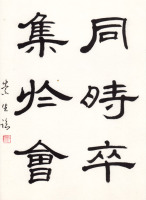 同時卒
集於會